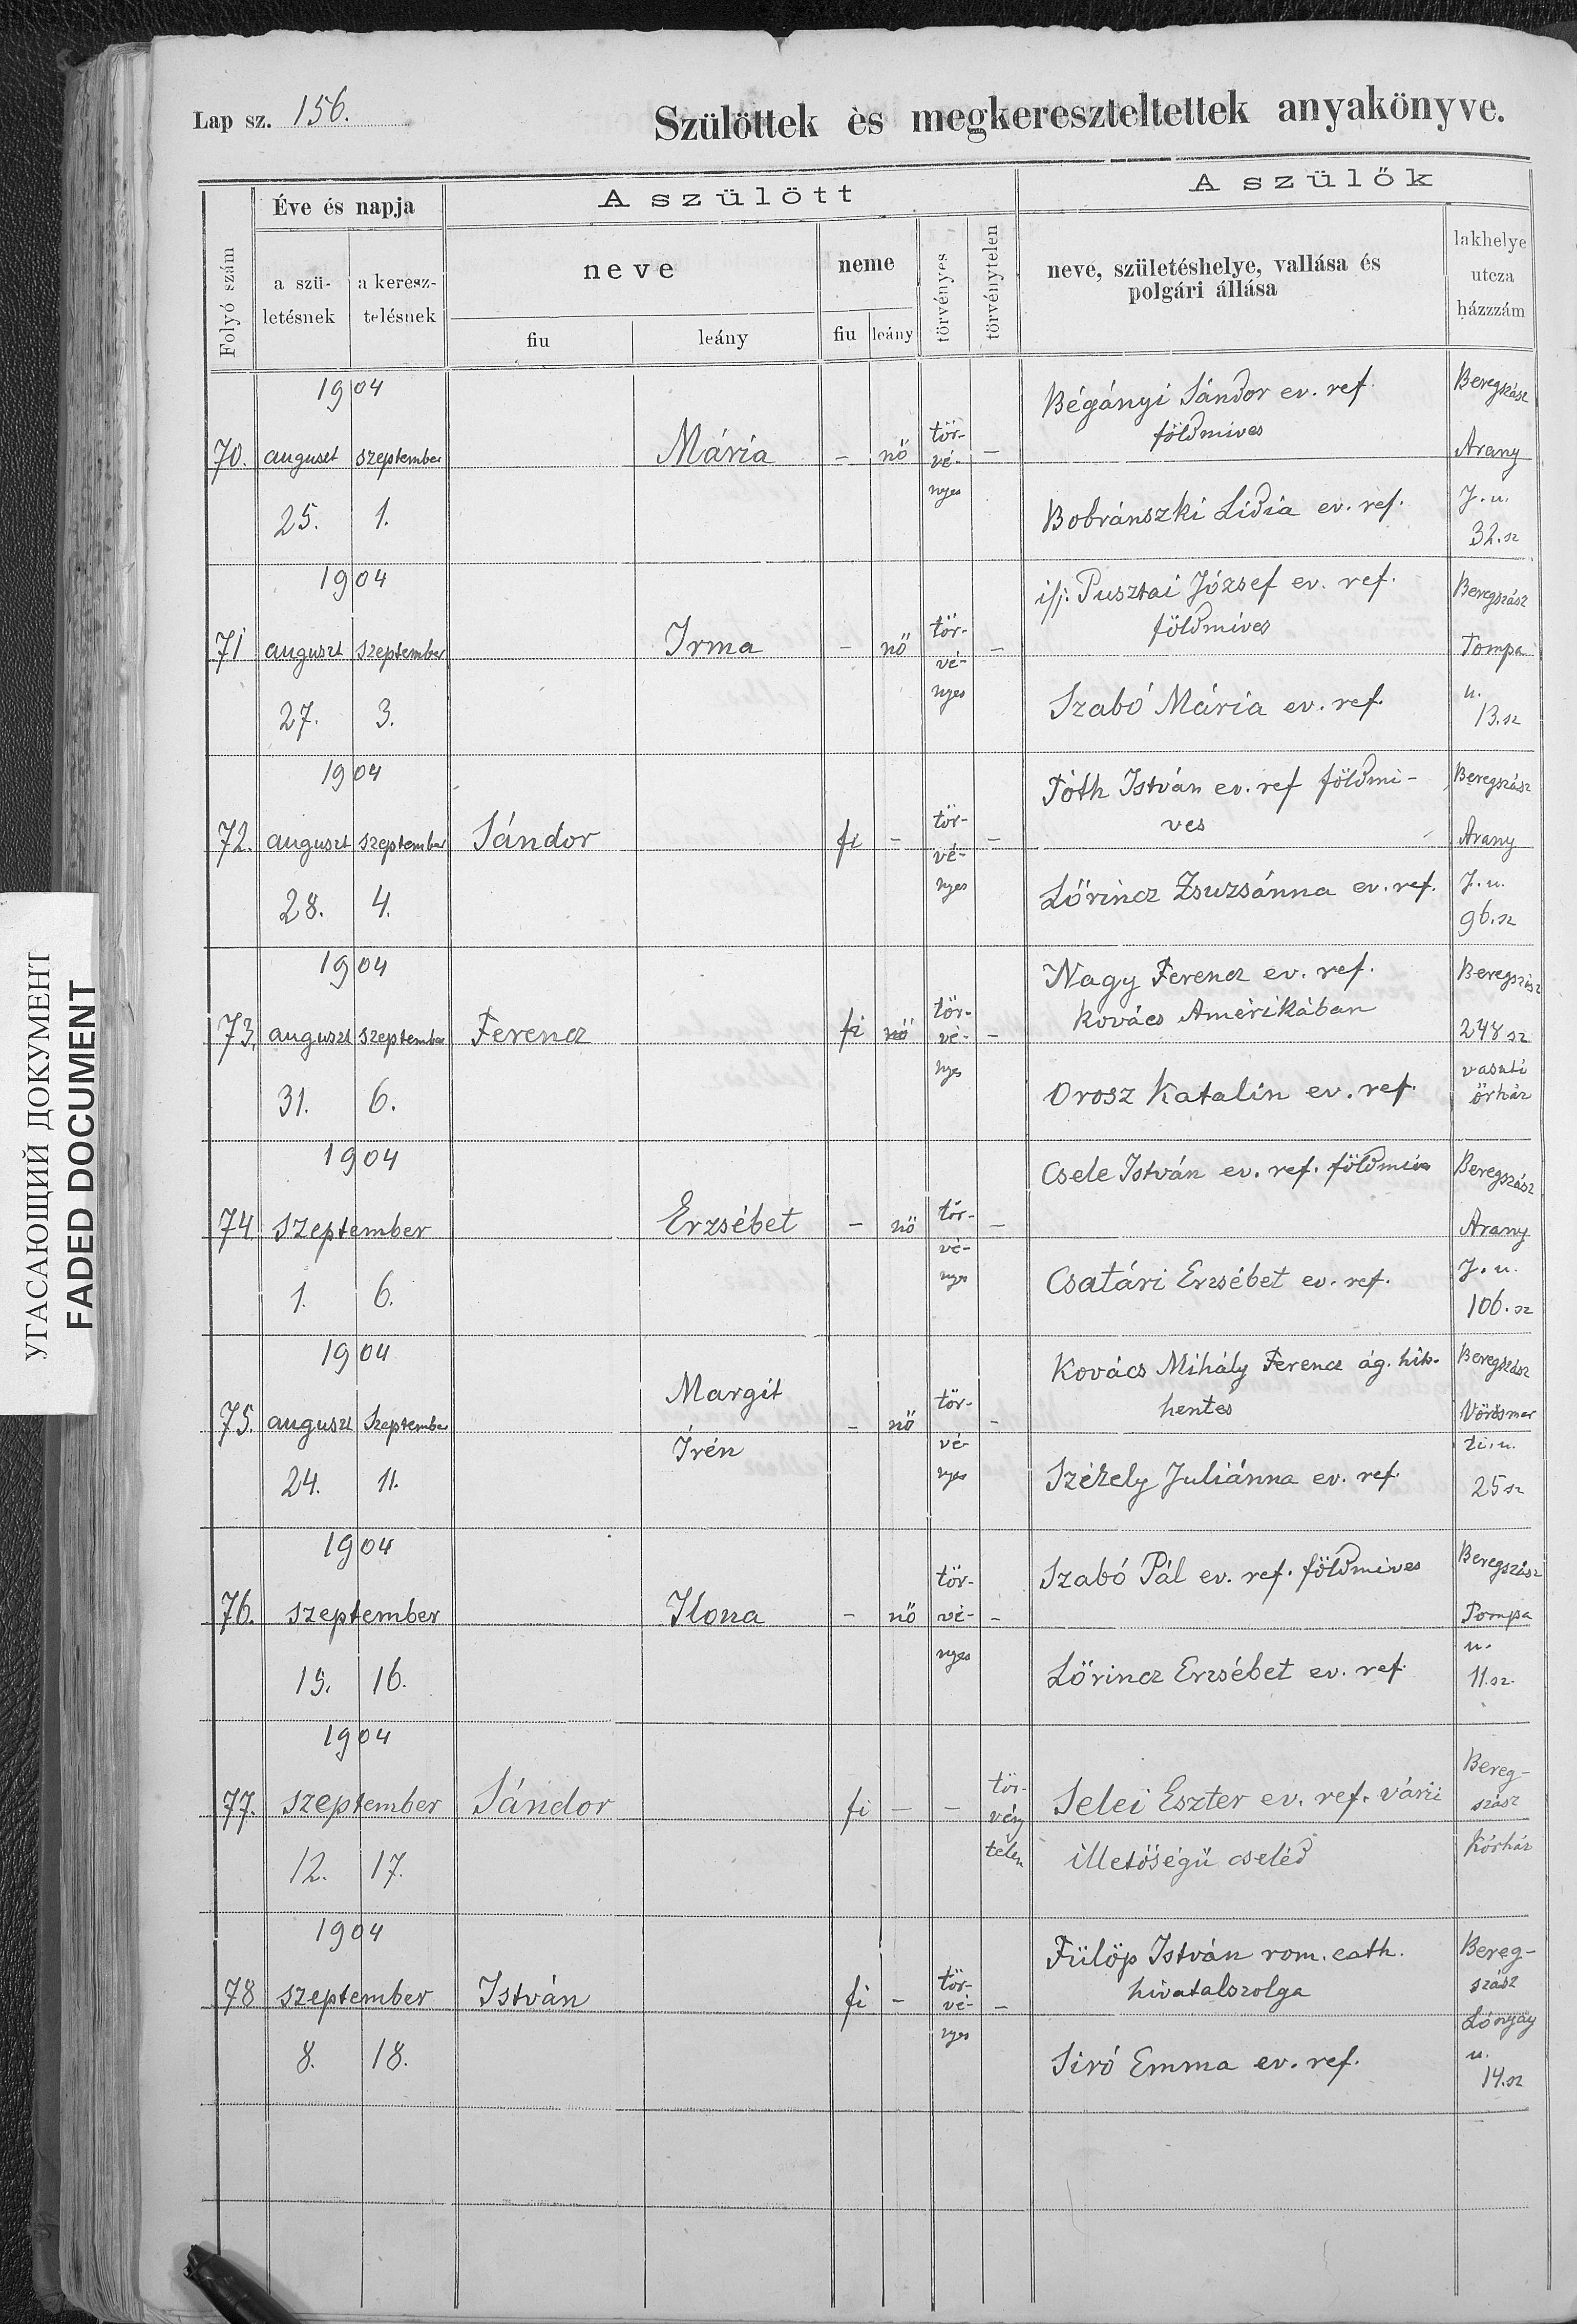 Lap sz. 156.
Szülöttek ès megkereszteltettek anyakönyve.
Folyó szám
Éve és napja
a szü-
letésnek
a keresz-
telésnek
A szülött
neve
fiu
leány
neme
fiu
leány
törvényes
törvénytelen
A szülők
neve, születéshelye, vallása és
polgári állása
lakhelye
utcza
házzzám
1904
70. auguszt szeptember
25. 1.
Mária
- nő
tör-
vé-
nyes
-
Bégányi Sándor ev. ref.
földmives
Bobránszki Lidia ev. ref.
Beregszász
Arany
J. u.
32. sz
1904
71 auguszt szeptember
27. 3.
Irma
- nő
tör-
vé-
nyes
-
ifj. Pusztai József ev. ref.
földmives
Szabó Mária ev. ref.
Beregszász
Tompa
u.
13. sz
1904
72. auguszt szeptember
28. 4.
Sándor
fi -
tör-
vé-
nyes
-
Tóth István ev. ref földmi-
ves
Lőrincz Zsuzsánna ev. ref.
Beregszász
Arany
J. u.
96. sz
1904
73. auguszt szeptember
31. 6.
Ferencz
fi nő
tör-
vé-
nyes
-
Nagy Ferencz ev. ref.
Kovács Amérikában
Orosz Katalin ev. ref.
Beregszász
248 sz
vasuti
őrház
1904
74 szeptember
1. 6.
Erzsébet
- nő
tör-
vé-
nyes
-
Csele István ev. ref. földmives
Csatári Erzsébet ev. ref.
Beregszász
Arany
J. u.
106. sz
1904
75. auguszt szeptember
24. 11.
Margit
Irén
- nő
tör-
vé-
nyes
-
Kovács Mihály Ferencz ág. hitv.
hentes
Székely Juliánna ev. ref.
Beregszász
Vörösmar
ti. u.
25 sz
1904
76. szeptember
15. 16.
Ilona
- nő
tör-
vé-
nyes
-
Szabó Pál ev. ref. földmives
Lőrincz Erzsébet ev. ref.
Beregszász
Tompa
u.
11. sz.
1904
77. szeptember
12. 17.
Sándor
fi - -
tör-
vény
telen
Selei Eszter ev. ref. várii
illetőségű cseléd
Bereg-
szász
Kórház
1904
78 szeptember
8. 18.
István
fi -
tör-
vé-
nyes
-
Fülöp István rom. cath.
hivatalszolga
Siró Emma ev. ref.
Bereg-
szász
Lónyay
u.
14. sz
УГАСАЮЩИЙ ДОКУМЕНТ
FADED DOCUMENT